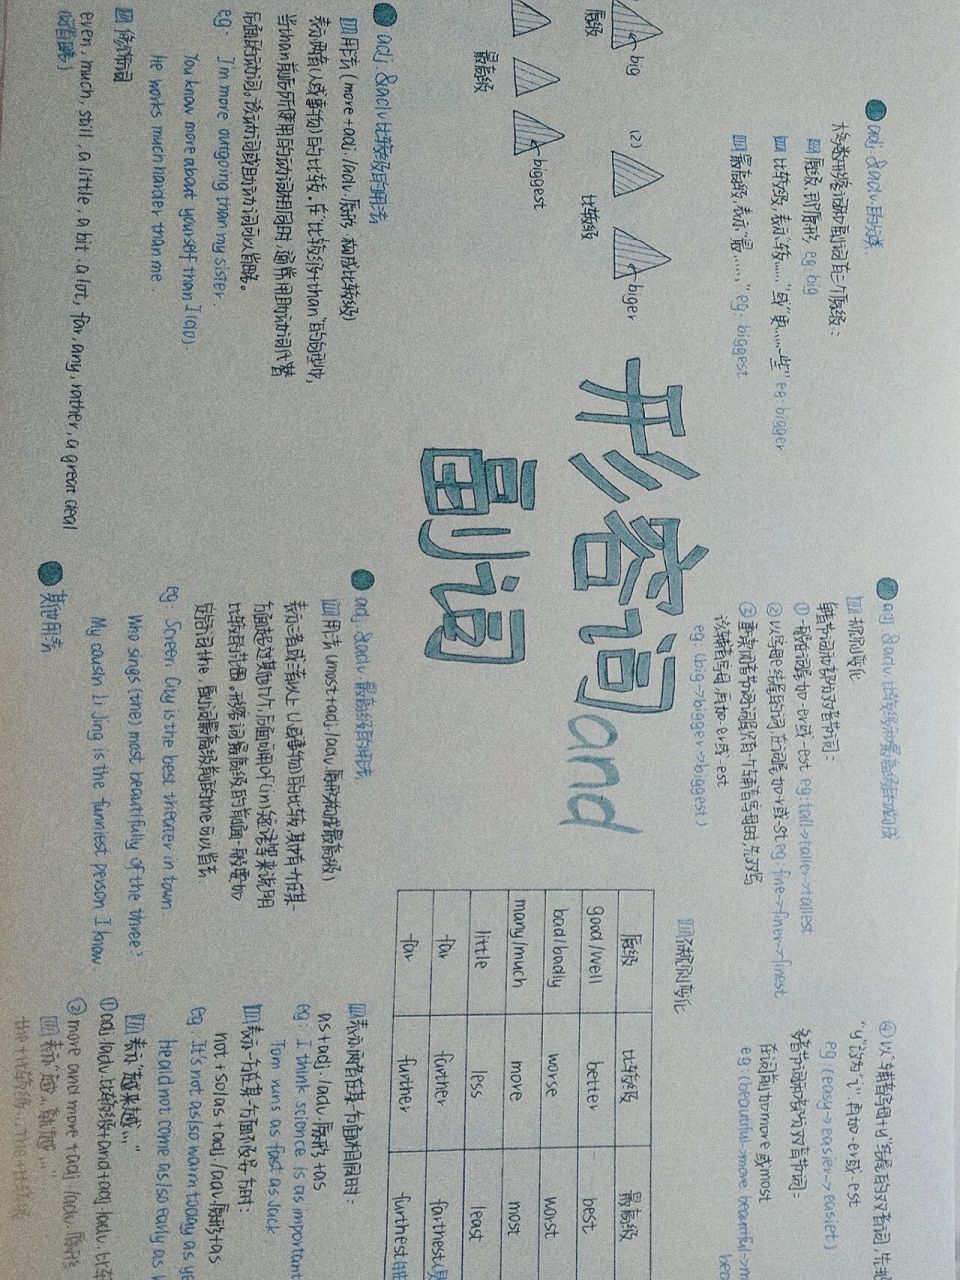 形容词and
副词
adj &adv 的分类
大多数形容词和副词有三个原级：
原级 即原形 eg: big
比较级, 表示“较……”或“更……一些” eg: bigger
最高级, 表示“最……” eg: biggest
big
原级
(2)
比较级
biger
最高级
biggest
adj &adv 比较级的用法
用法 (more+adj /adv 原形 构成比较级)
表示两者(人或事物)的比较。在“比较级+than”的句型中,
当than前后所使用的动词相同时, 通常用助动词代替
后面的动词。该动词或助动词可以省略。
eg: I'm more outgoing than my sister.
You know more about yourself than I (do).
He works much harder than me
修饰词
even, much, still, a little, a bit, a lot, far, any, rather, a great deal
adj &adv 比较级和最高级的构成
规则变化
单音节词和部分双音节词：
① 一般在词尾加-er或-est eg: tall->taller->tallest
② 以字母e结尾的词 在词尾加-r或-st eg: fine->finer->finest
③ 重读闭音节词词尾只有一个辅音字母时 先双写
该辅音字母, 再加-er或-est
eg: (big->bigger->biggest)
④ 以“辅音字母+y”结尾的双音词, 先
“y”改为“i”, 再加-er或-est
eg (easy->easier->easiet)
多音节词和部分双音节词：
在词前加more 或most
eg (beautiful->more beautiful->m
不规则变化
原级 比较级 最高级
good/well better best
bad/badly worse worst
many/much more most
little less least
far farther farthest
far further furthest
adj &adv 最高级的用法
用法 (most+adj /adv 原形构成最高级)
表示三者或三者以上(人或事物)的比较, 其中有一个在某一
方面超过其他几个, 后面可用of (in)短语等来说明
比较的范围。形容词最高级的前面一般要加
定冠词the, 副词最高级前的the可以省去.
eg: Screen City is the best theater in town
Who sings (the) most beautifully of the three?
My cousin Li Jing is the funniest person I know
其他用法
表示两者在某方面相同时：
as+adj /adv 原形+as
eg: I think science is as important
Tom runs as fast as Jack
表示一方在某方面不及另一方时：
not +so/as +adj /adv 原形+as
eg It's not as/so warm today as ye
He did not come as/so early as
表示“越来越…”
① adj/adv 比较级+and+adj /adv 比
② more and more+adj /adv 原形
表示“越…就越…”
the+比较级